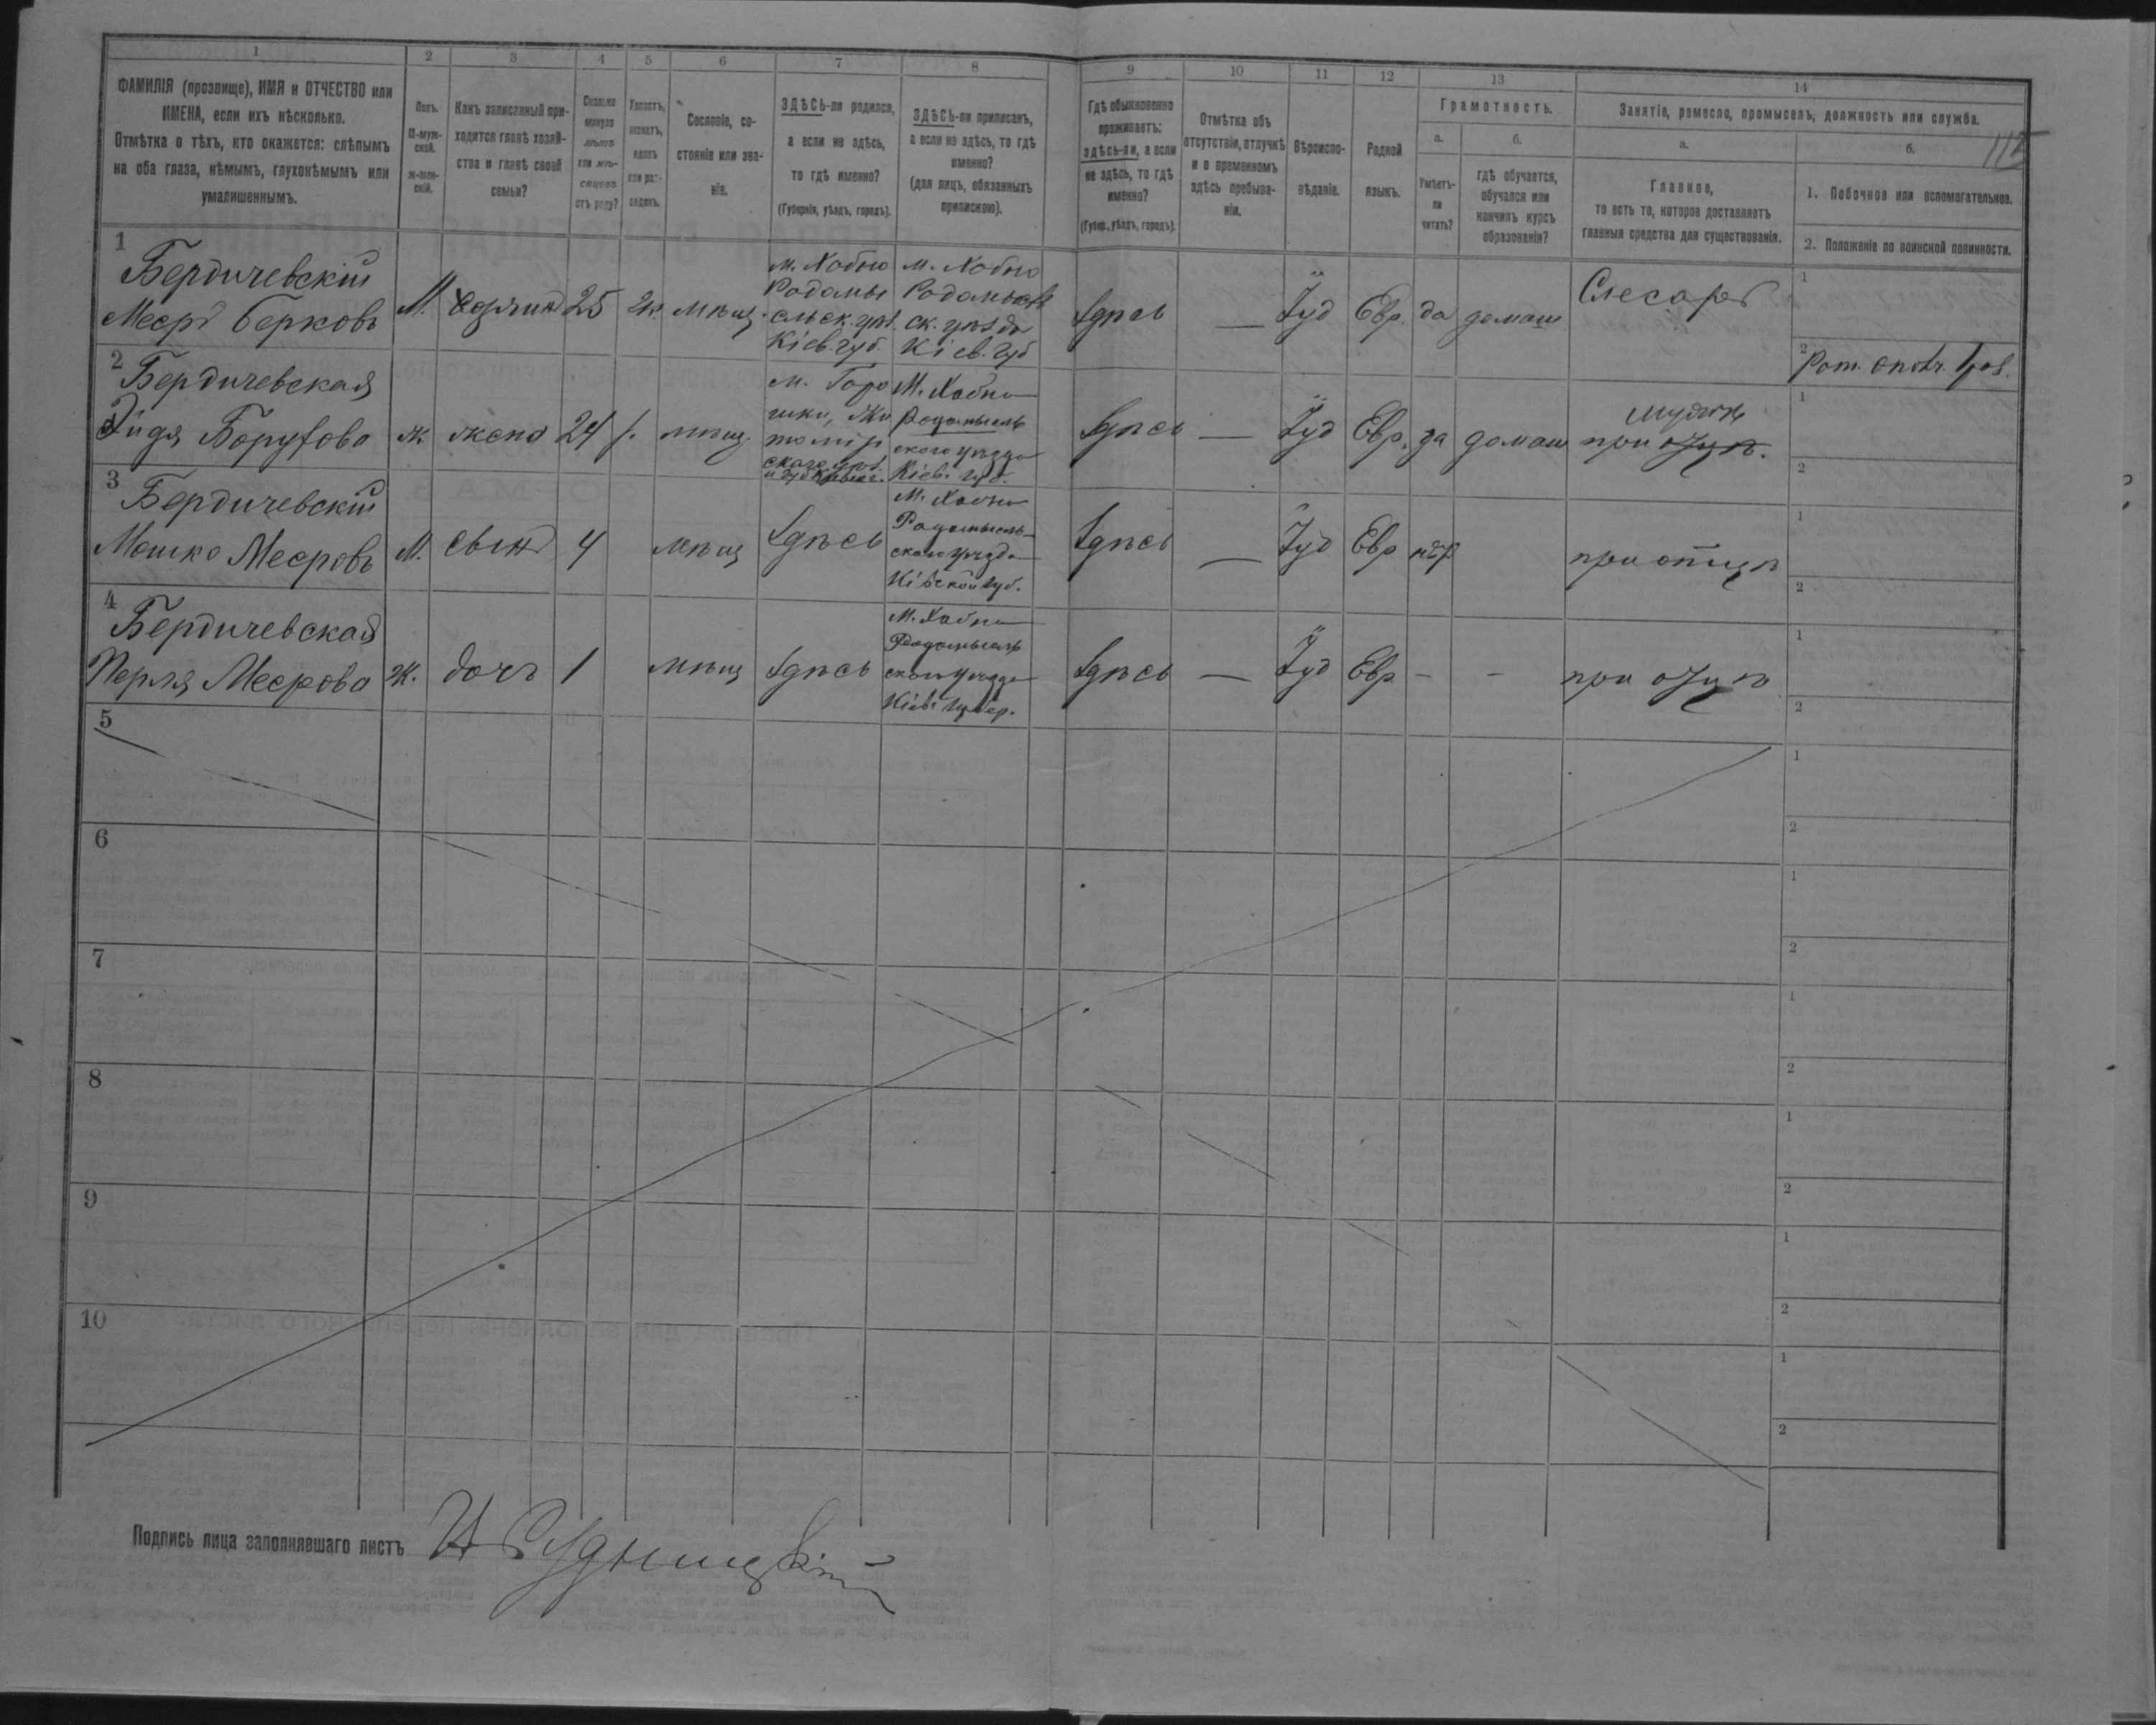 1 2 3 4 5 6 7 8 9 10 11 12 13 14
ФАМИЛІЯ (прозвище), ИМЯ и ОТЧЕСТВО или
ИМЕНА, если ихъ нѣсколько.
Отмѣтка о тѣхъ, кто окажется: слѣпымъ
на оба глаза, нѣмымъ, глухонѣмымъ или
умалишеннымъ.
Полъ.
М-муж-
ской.
Ж-жен-
скій.
Какъ записанный при-
ходится главѣ хозяй-
ства и главѣ своей
семьи?
Сколько
минуло
лѣтъ
или мѣ-
сяцевъ
отъ роду?
Холостъ,
женатъ,
вдовъ
или раз-
веденъ.
Сословіе, со-
стояніе или зва-
ніе.
ЗДѢСЬ-ли родился,
а если не здѣсь,
то гдѣ именно?
(Губернія, уѣздъ, городъ).
ЗДѢСЬ-ли приписанъ,
а если не здѣсь, то гдѣ
именно?
(для лицъ, обязанныхъ
припискою).
Гдѣ обыкновенно
проживаетъ:
здѣсь-ли, а если
не здѣсь, то гдѣ
именно?
(Губер., уѣздъ, городъ).
Отмѣтка объ
отсутствіи, отлучкѣ
и о временномъ
здѣсь пребыва-
ніи.
Вѣроиспо-
вѣданіе.
Родной
языкъ.
Грамотность.
а.
Умѣетъ-
ли
читать?
б.
гдѣ обучается,
обучался или
кончилъ курсъ
образованія?
Занятіе, ремесло, промыселъ, должность или служба.
а.
Главное,
то есть то, которое доставляетъ
главныя средства для существованія.
б.
1. Побочное или вспомогательное.
2. Положеніе по воинской повинности.
1
Бердичевскій
Мееръ Берковъ
М.
хозяинъ
25
мѣщ.
м. Хабно
Радомы
сльск. уѣз.
Кіев. губ.
м. Хабно
ск. уѣзда
Кіев. губ
здѣсь
—
Іуд
Евр.
да
домаш
Слесарь
1
2
2
Бердичевская
Боруховa
ж.
жена
24
мѣщ.
м. Горо
шки, Жи
томір
скаго уѣз.
М. Хабна
Радомысль
скаго уѣзда
Кіев. губ.
здѣсь
—
Іуд
Евр.
да
домаш
при
мужѣ
1
2
3
Бердичевскій
Мошко Мееровъ
М.
сынъ
4
мѣщ
здѣсь
М. Хабна
Радомысль-
скаго уѣзда
Кіевской губ.
здѣсь
—
Іуд
Евр
при отцѣ
1
2
4
Бердичевская
Перля Меерова
Ж.
дочь
1
мѣщ
здѣсь
М. Хабна
Радомысль
скаго уѣзда
Кіев. губер.
здѣсь
—
Іуд
Евр
-
-
при отцѣ
1
2
5
1
2
6
1
2
7
1
2
8
1
2
9
1
2
10
1
2
Подпись лица заполнявшаго листъ